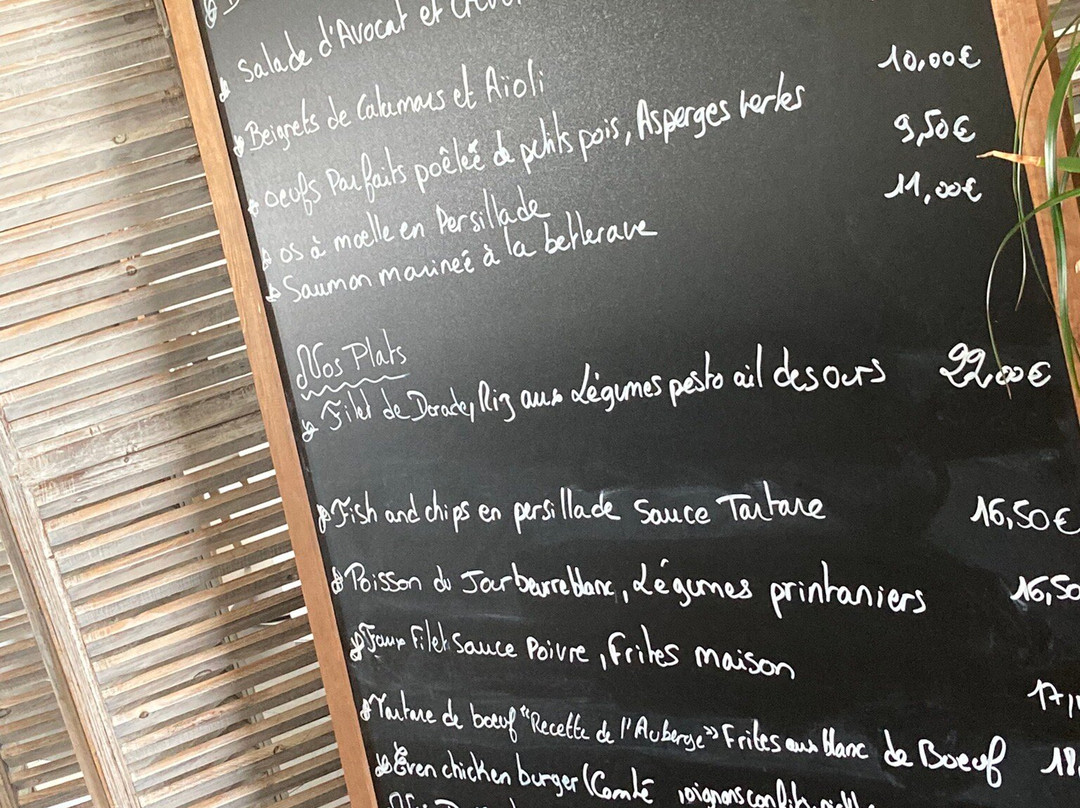 Salade d'Avocat et
Beignets de Calamars et Aïoli 10,00€
oeufs Parfaits poêleé de petits pois, Asperges vertes 9,50€
os à moelle en Persillade 11,00€
Saumon marineé à la betterave
Nos Plats
Filet de Dorade, Riz aux Légumes pesto ail des ours 22,00€
Fish and chips en persillade Sauce Tartare 16,50€
Poisson du Jour beurre blanc, Légumes printaniers 16,50
Faux Filet Sauce Poivre, Frites maison 17,
Tartare de boeuf "Recette de l'Auberge" Frites aux blanc de Boeuf 18,
Even chicken burger (Comté oignons confits